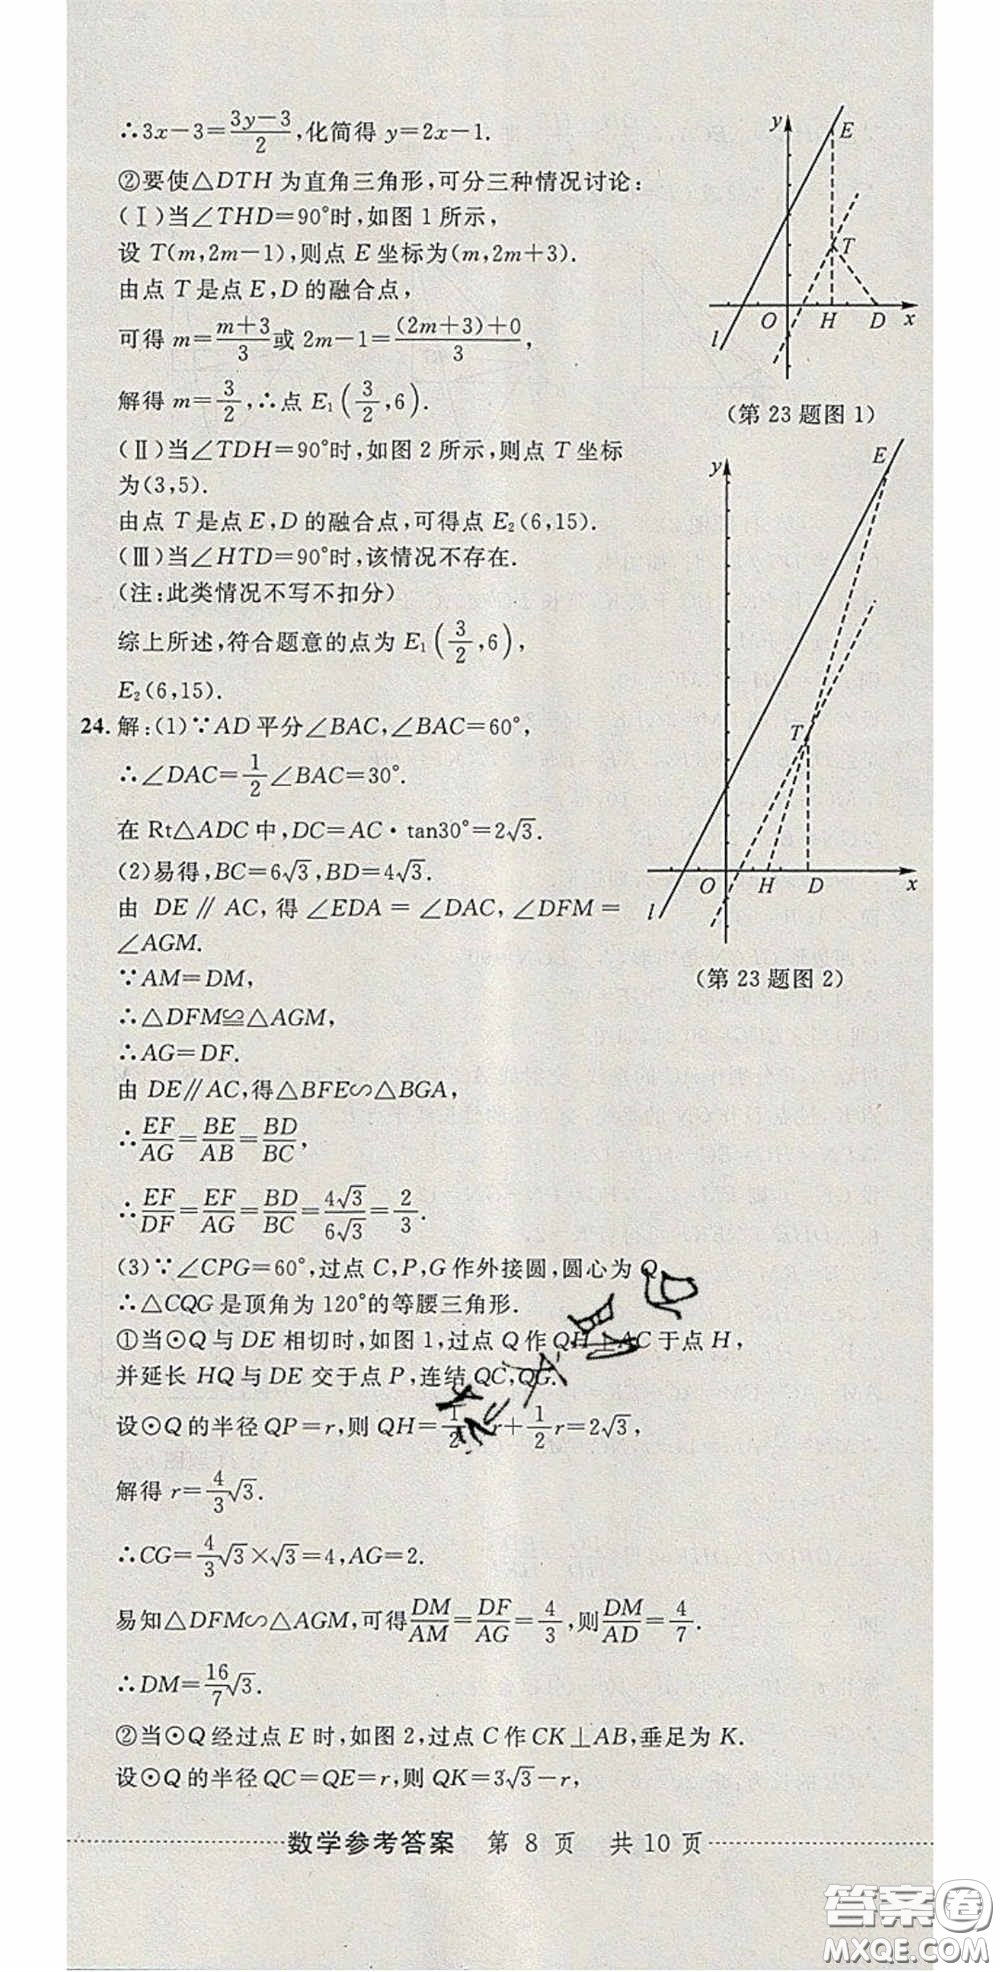 ∴3x-3=\frac{3y-3}{2},化简得 y=2x-1.
②要使△DTH 为直角三角形,可分三种情况讨论:
(Ⅰ)当∠THD=90°时,如图 1 所示,
设 T(m,2m-1),则点 E 坐标为(m,2m+3).
由点 T 是点 E,D 的融合点,
可得 m=\frac{m+3}{3}或 2m-1=\frac{(2m+3)+0}{3},
解得 m=\frac{3}{2},∴点 E₁(\frac{3}{2},6).
(Ⅱ)当∠TDH=90°时,如图 2 所示,则点 T 坐标
为(3,5).
由点 T 是点 E,D 的融合点,可得点 E₂(6,15).
(Ⅲ)当∠HTD=90°时,该情况不存在.
(注:此类情况不写不扣分)
综上所述,符合题意的点为 E₁(\frac{3}{2},6),
E₂(6,15).
y
E
T
O
H
D
x
l
(第 23 题图 1)
y
E
T
O
H
D
x
l
(第 23 题图 2)
24. 解:(1)∵AD 平分∠BAC,∠BAC=60°,
∴∠DAC=\frac{1}{2}∠BAC=30°.
在 Rt△ADC 中,DC=AC·tan30°=2√3.
(2)易得,BC=6√3,BD=4√3.
由 DE∥AC,得∠EDA=∠DAC,∠DFM=
∠AGM.
∵AM=DM,
∴△DFM≌△AGM,
∴AG=DF.
由 DE∥AC,得△BFE∽△BGA,
∴\frac{EF}{AG}=\frac{BE}{AB}=\frac{BD}{BC},
∴\frac{EF}{DF}=\frac{EF}{AG}=\frac{BD}{BC}=\frac{4√3}{6√3}=\frac{2}{3}.
(3)∵∠CPG=60°,过点 C,P,G 作外接圆,圆心为 Q,
∴△CQG 是顶角为 120°的等腰三角形.
①当⊙Q 与 DE 相切时,如图 1,过点 Q 作 QH⊥AC 于点 H,
并延长 HQ 与 DE 交于点 P,连结 QC,QG.
设⊙Q 的半径 QP=r,则 QH=\frac{1}{2}r,r+\frac{1}{2}r=2√3,
解得 r=\frac{4}{3}√3.
∴CG=\frac{4}{3}√3×√3=4,AG=2.
易知△DFM∽△AGM,可得\frac{DM}{AM}=\frac{DF}{AG}=\frac{4}{3},则\frac{DM}{AD}=\frac{4}{7}.
∴DM=\frac{16}{7}√3.
②当⊙Q 经过点 E 时,如图 2,过点 C 作 CK⊥AB,垂足为 K.
设⊙Q 的半径 QC=QE=r,则 QK=3√3-r,
数学参考答案 第 8 页 共 10 页
答案圈
MXQE.COM